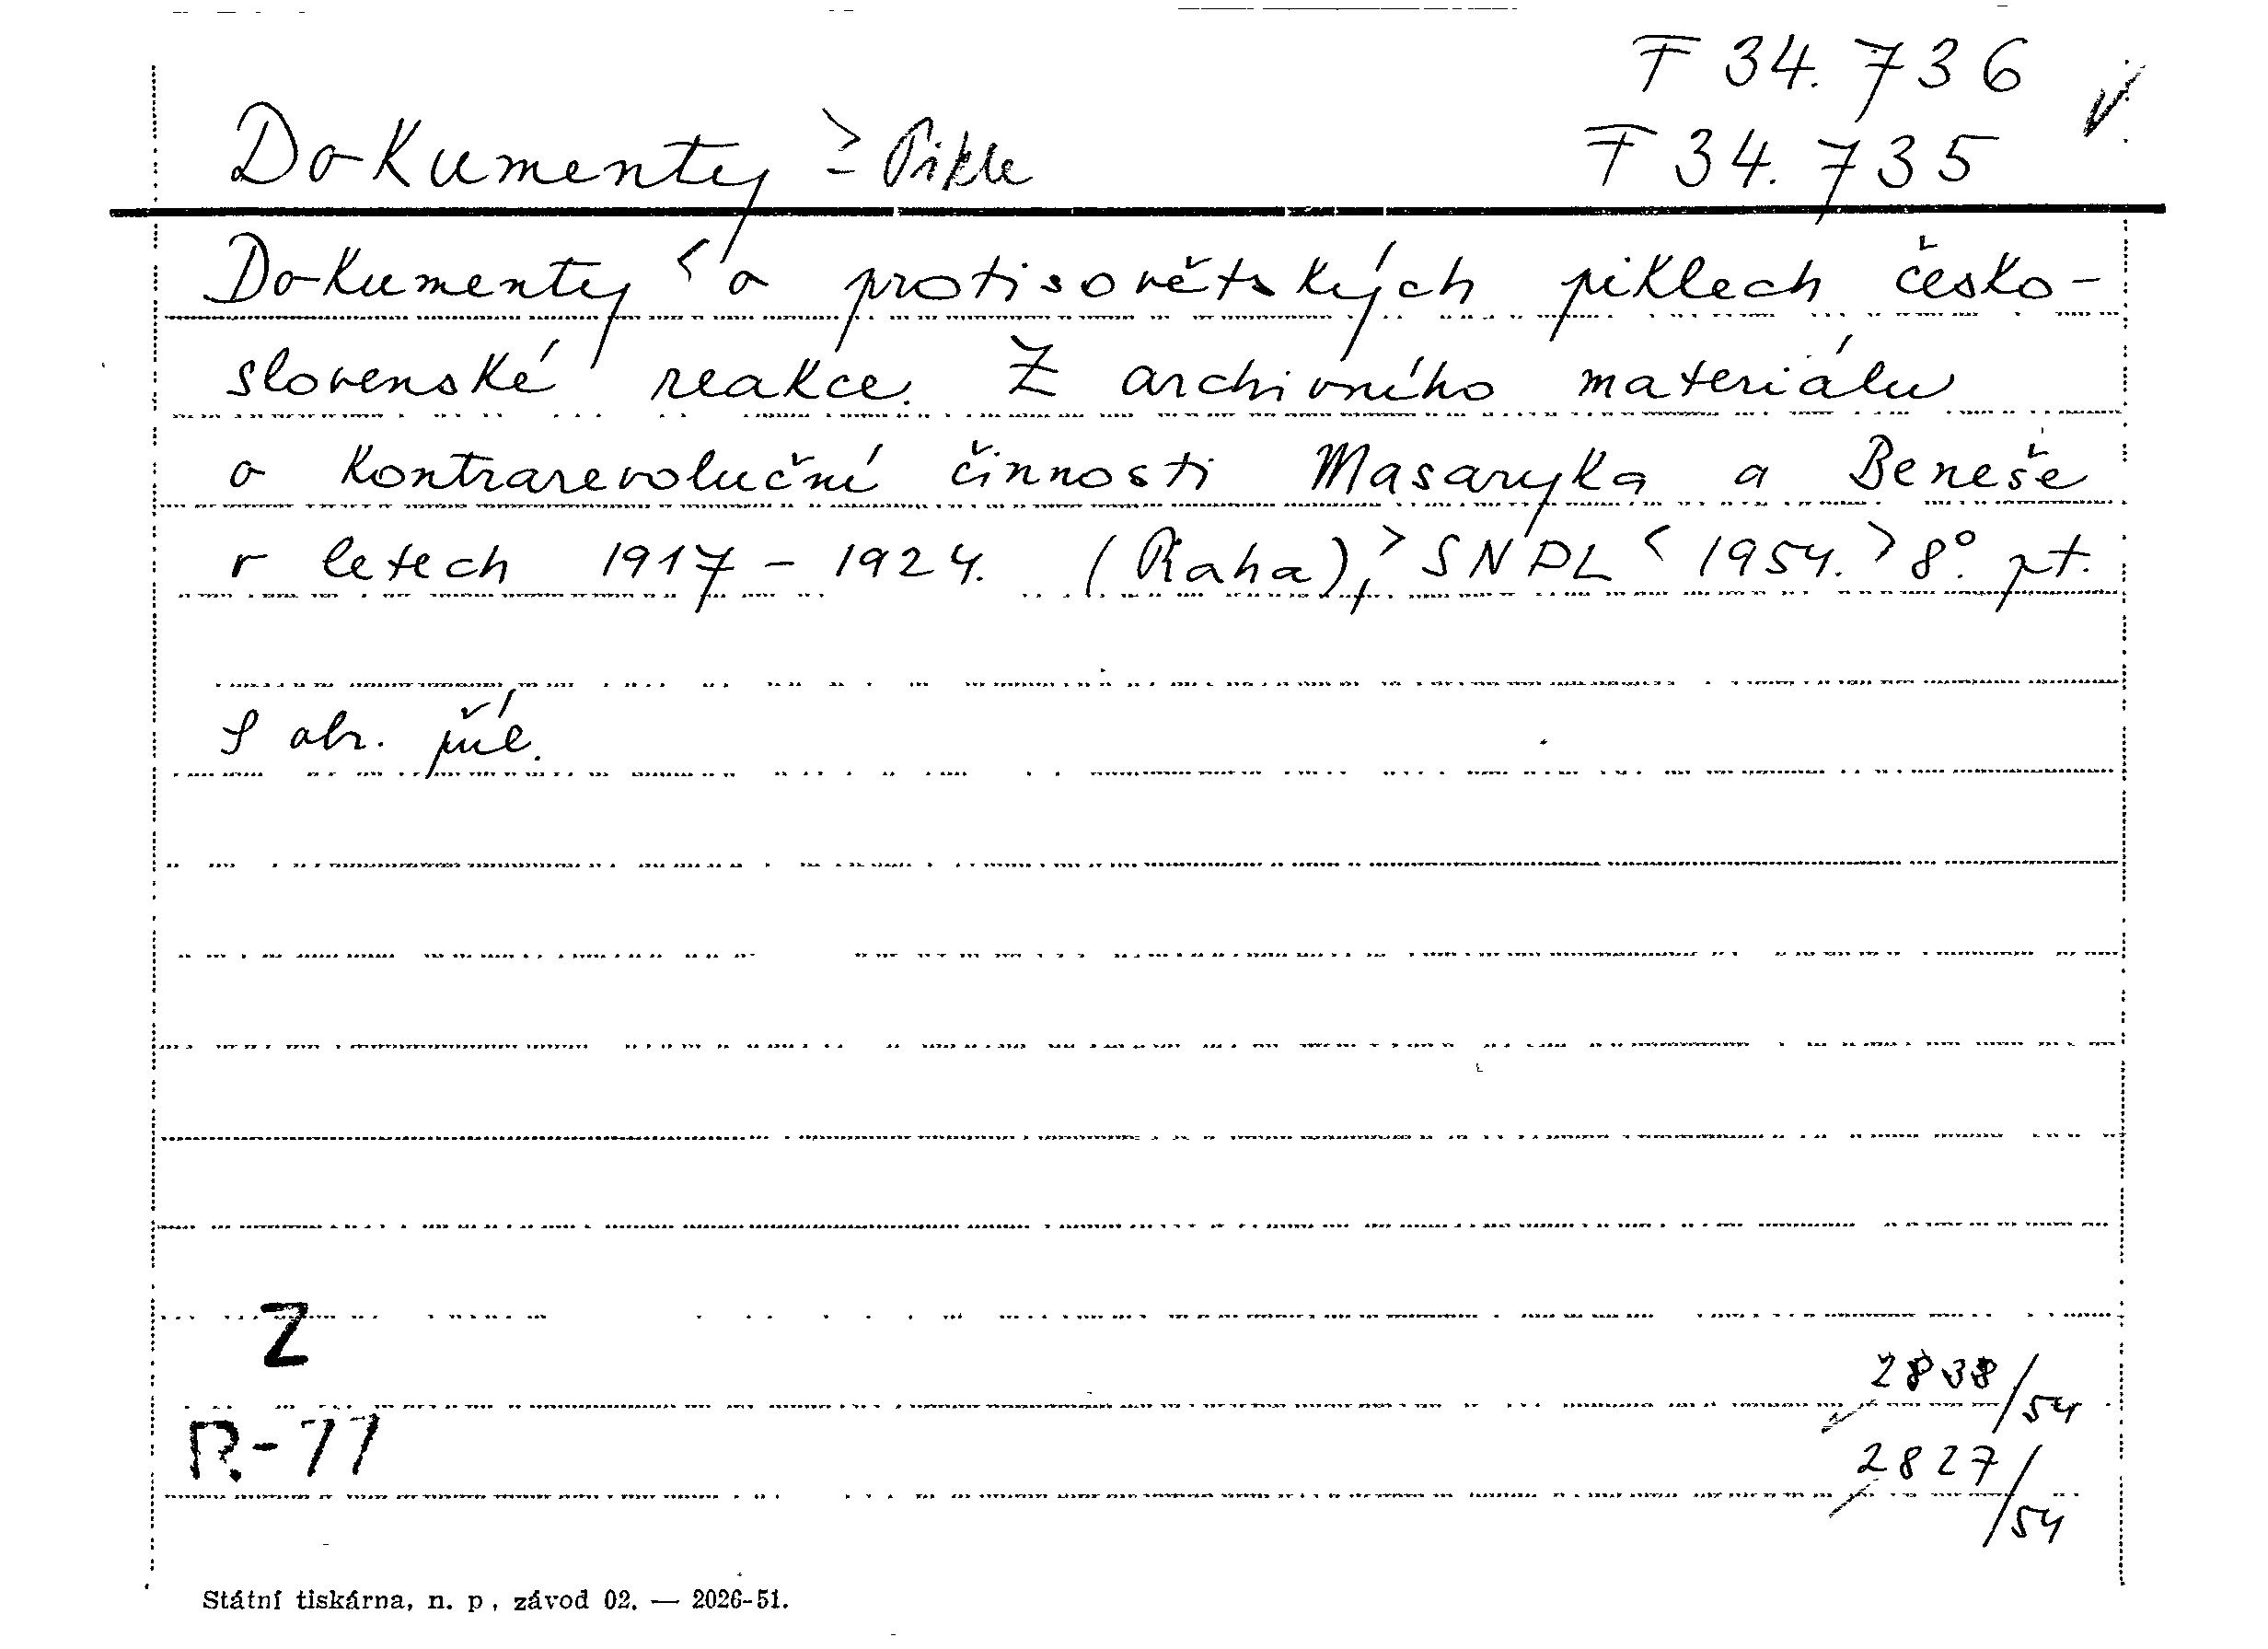 F 34.736
Dokumenty > - Pikle F 34.735
Dokumenty < o protisovětských piklech česko-
slovenské reakce. Z archivního materiálu
o kontrarevoluční činnosti Masaryka a Beneše
v letech 1917 - 1924. (Praha), > SNPL < 1954. > 8°. pt.
S obr. příl.
Z
2838/54
R-77
2827/54
Státní tiskárna, n. p, závod 02. — 2026-51.